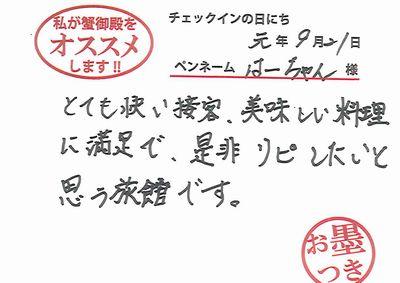 私が蟹御殿を
オススメ
します!!
チェックインの日にち
元年9月21日
ペンネーム はーちゃん 様
とても快い接客、美味しい料理
に満足で、是非リピしたいと
思う旅館です。
お墨
つき